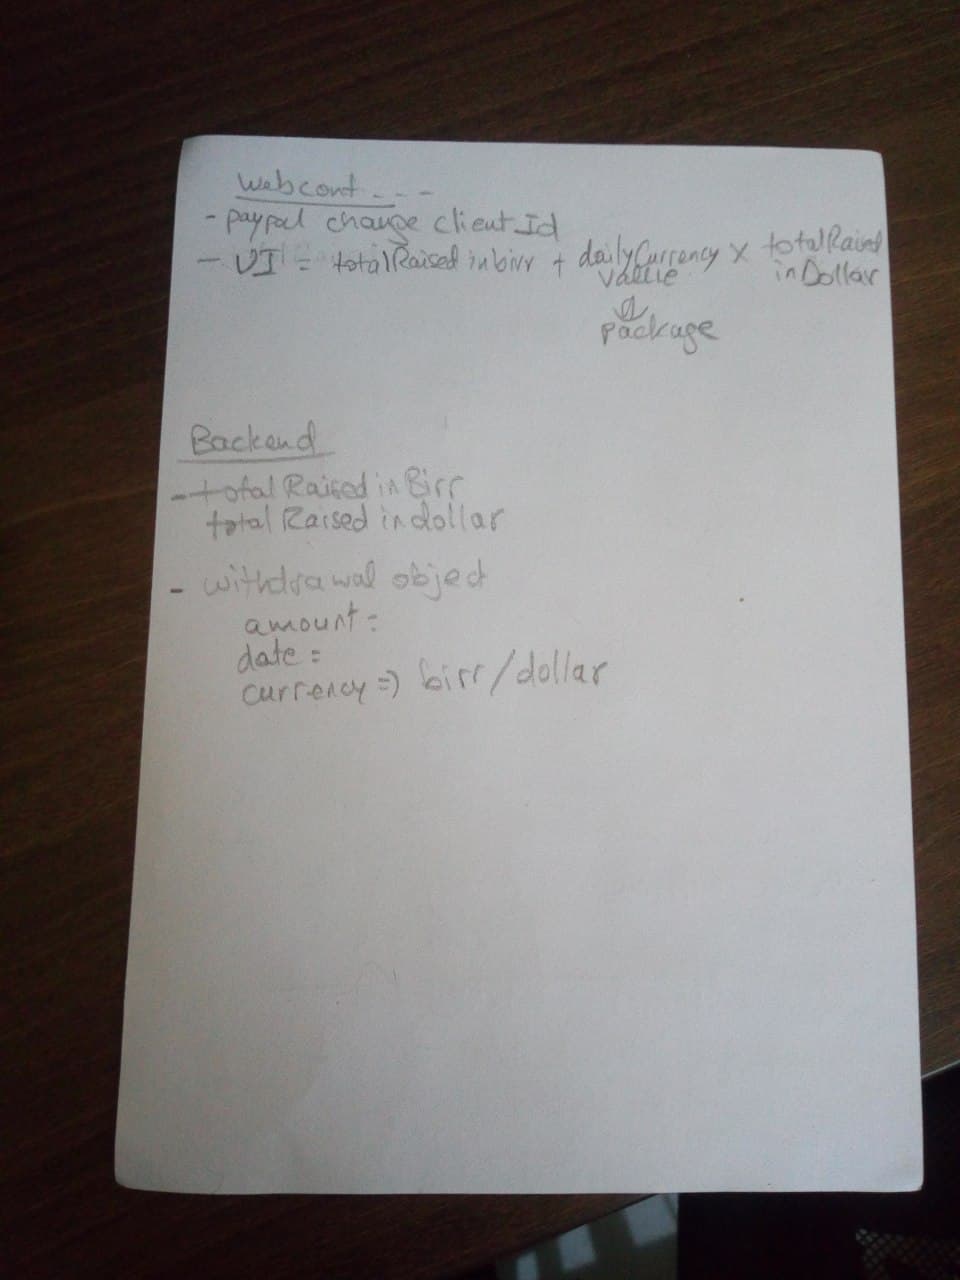 Web cont - - -
- paypal change client Id
- UI = totalRaised in birr + dailyCurrency value X totalRaised in Dollar
package
Backend
- total Raised in Birr
total Raised in dollar
- withdrawal object
amount =
date =
currency => birr/dollar